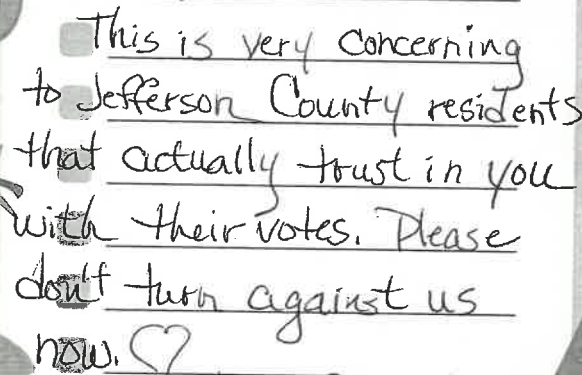 This is very concerning
to Jefferson County residents
that actually trust in you
with their votes. Please
don't turn against us
now. ♡